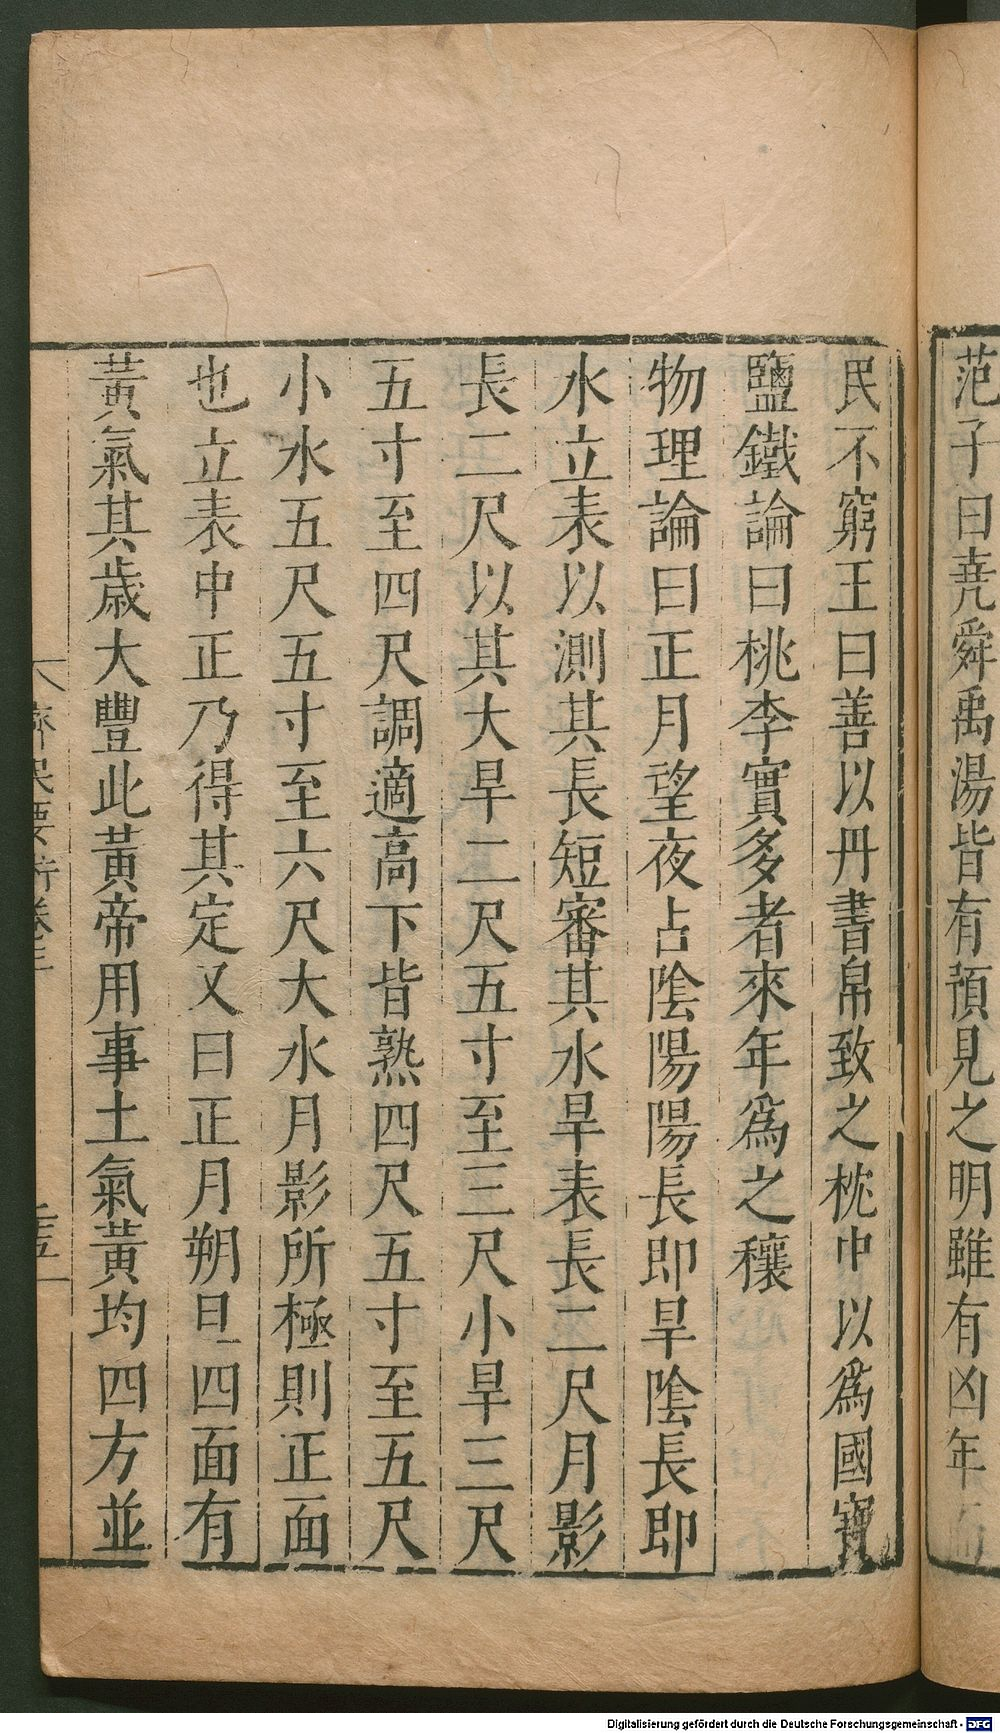 范子曰堯舜禹湯皆有預見之明雖有凶年而
民不窮王曰善以丹書帛致之枕中以爲國寶
鹽鐵論曰桃李實多者來年爲之穰
物理論曰正月望夜占陰陽陽長即旱陰長即
水立表以測其長短審其水旱表長二尺月影
長二尺以其大旱二尺五寸至三尺小旱三尺
五寸至四尺調適高下皆熟四尺五寸至五尺
小水五尺五寸至六尺大水月影所極則正面
也立表中正乃得其定又曰正月朔旦四面有
黃氣其歲大豐此黃帝用事土氣黃均四方並
齊民要術卷三
Digitalisierung gefördert durch die Deutsche Forschungsgemeinschaft - DFG